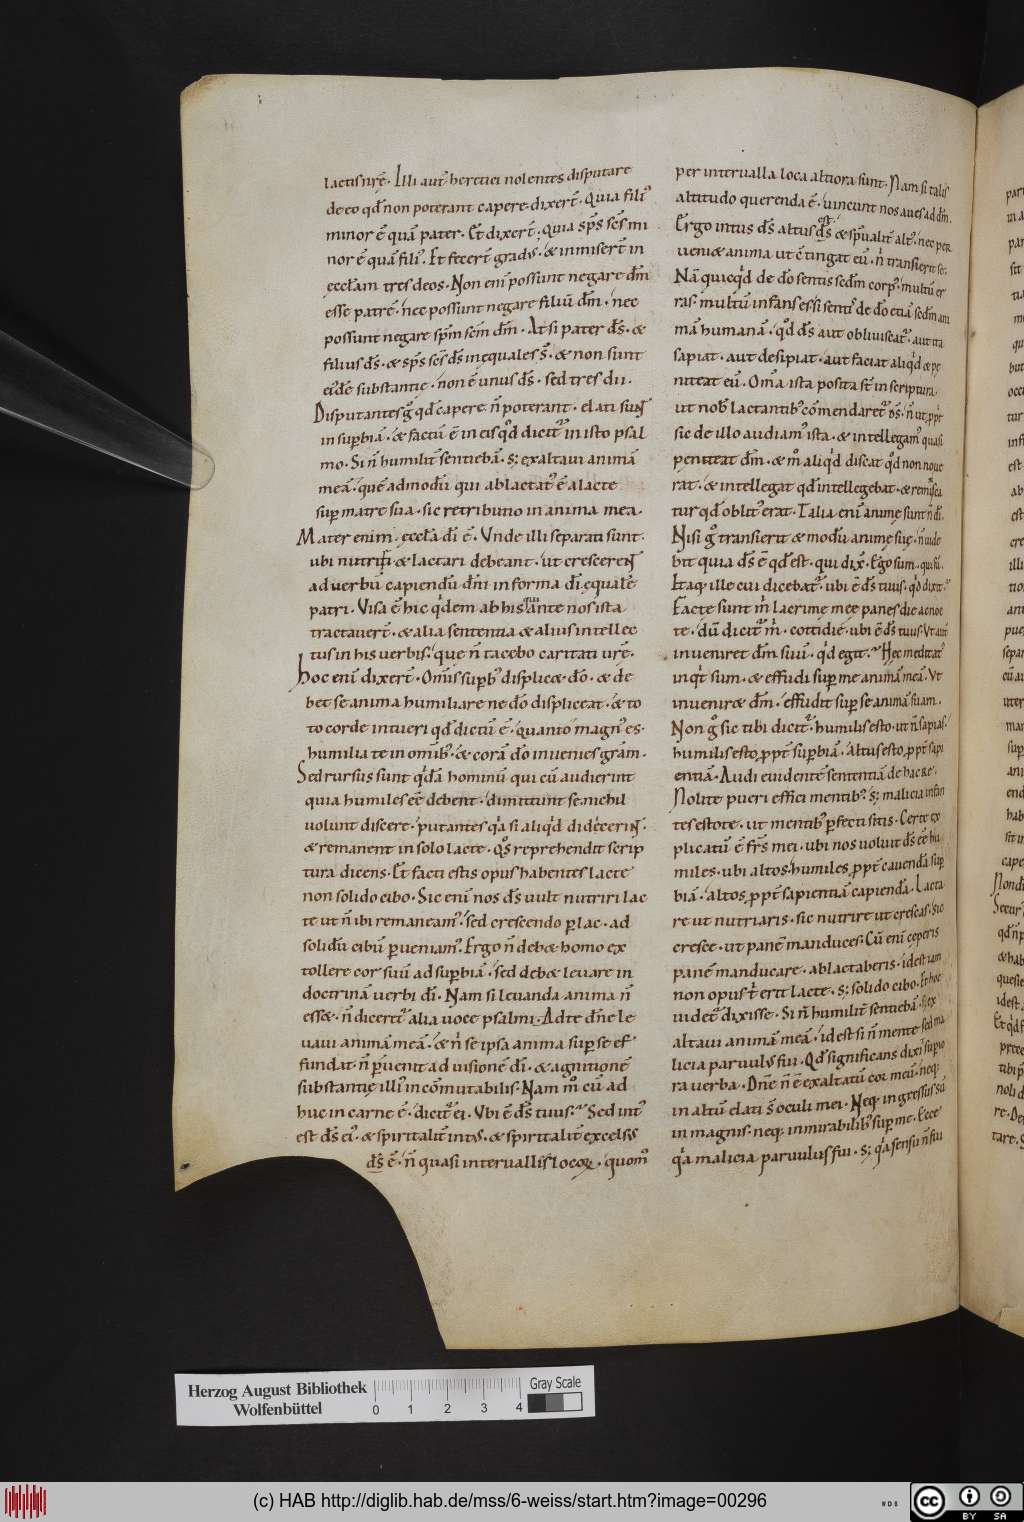 lactis nr̄ę. Illi aut̄ heretici nolentes disputare
de eo qd̄ non poterant capere. dixer̄t. Quia fili᷒
minor ē quā pater. Et dixer̄t. quia sp̄s sc̄s mi
nor ē quā fili᷒. Et fecer̄t grad᷒. & inmiser̄t in
ęccl̄am tres deos. Non eni᷒ possunt negare dm̄
esse patrē. nec possunt negare filiū dm̄. nec
possunt negare sp̄m sc̄m dm̄. At si pater ds̄. &
filius ds̄. & sp̄s sc̄s ds̄ inequales s̄. & non sunt
ei᷒dē substantię. non ē unus ds̄. sed tres dii.
Disputantes g̊ qd̄ capere n̄ poterant. elati sunt
in sup̱biā. & factū ē in eis qd̄ dicit᷒ in isto psal
mo. Si n̄ humilit̄ sentiebā. s; exaltaui animā
meā. quē admodū qui ablactat᷒ ē a lacte
sup̱ matre sua. sic retributio in anima mea.
Mater enim ęccl̄a di᷒ ē. Unde illi separati sunt.
ubi nutriri & lactari debeant. ut crescerent
ad uerbū capiendū dn̄i in forma di᷒ ęqualē
patri. Visa ē hic qi᷒dem ab his qui ante nos ista
tractauer̄t. & alia sententia & alius intellec
tus in his uerbis. que n̄ tacebo caritati ur̄ę.
hoc eni᷒ dixer̄t. Om̄is sup̱b᷒ displic& dō. & de
bet se anima humiliare ne dō displiceat. & to
to corde intueri qd̄ dictū ē. quanto magn᷒ es.
humilia te in omib᷒. & corā dō inuenies gr̄am.
Sed rursus sunt qi᷒dā hominū qui cū audierint
quia humiles eē debent. dimittunt se. nichil
uolunt discere. putantes qa si aliqd̄ didicerint.
& remanent in solo lacte. Qo᷒s reprehendit scrip
tura dicens. Et facti estis opus habentes lacte
non solido cibo. Sic eni᷒ nos ds̄ uult nutriri lac
te ut n̄ ibi remaneam᷒. sed crescendo p̱ lac. ad
solidū cibū p̱ueniam᷒. Ergo n̄ deb& homo ex
tollere cor suū ad sup̱biā. sed deb& leuare in
doctrinā uerbi di᷒. Nam si leuanda anima n̄
ess&. n̄ dicer&᷒ alia uoce psalmi. Ad te dn̄e le
uaui animā meā. & ni᷒ se ipsa anima sup̱ se ef
fundat. n̄ p̱uenit ad uisionē di᷒. & agnitionē
substantię illi᷒ incōmutabilis. Nam m̊ cū ad
huc in carne ē. dicit᷒ ei. Ubi ē ds̄ tuus. Sed int᷒
est ds̄ ei᷒. & spiritalit̄ int᷒. & spiritalit̄ excels᷒
ds̄ ē. n̄ quasi interuallis locoꝝ. quom᷒
per interualla loca altiora sunt. Nam si talis
altitudo querenda ē. uincunt nos aues ad dm̄.
Ergo intus ds̄ altus ds̄ est & sp̄ualit̄ alt᷒. nec per
ueni& anima ut ctingat eū. ni᷒ transierit se.
Nā quicqi᷒d de dō sentis scdm̄ corp᷒. multū er
ras. multū infans es. si senti᷒ de dō etiā scdm̄ ani
mā humanā. qd̄ ds̄ aut obliuiscat᷒. aut ita
sapiat. aut desipiat. aut faciat aliqi᷒d & pę
niteat eū. Om̄a ista posita st̄ in scriptura.
ut nob᷒ lactantib᷒ cōmendaret᷒ ds̄. n̄ ut pp̄t
sic de illo audiam᷒ ista. & intellegam᷒ quasi
peniteat dm̄. & m̊ aliqi᷒d discat qd̄ non noue
rat. & intellegat qd̄ intellegebat. & reminisca
tur qd̄ oblit᷒ erat. Talia eni᷒ animę sunt n̄ di᷒.
Nisi g̊ transierit & modū animę suę. n̄ uide
bit quia ds̄ ē qd̄ est. qui dix̄. Ego sum. qui sū.
Itaq. ille cui dicebat᷒. ubi ē ds̄ tuus. qi᷒d dixit.
Facte sunt mi᷒ lacrimę meę panes die ac noc
te. dū dicit᷒ mi᷒. cottidie. ubi ē ds̄ tuus. Ut aut̄
inueniret dm̄ suū. qi᷒d egit. Hęc meditat᷒
inqi᷒t sum. & effudi sup̱ me animā meā. Ut
inuenir& dm̄. effudit sup̱ se animā suam.
Non g̊ sic tibi dicit᷒. humilis esto. ut n̄ sapias.
humilis esto, pp̄t sup̱biā. Altus esto, pp̄t sapi
entiā. Audi euidentē sententiā de hac re.
Nolite pueri effici mentib᷒. s; malicia infan
tes estote. ut mentib᷒ p̱fecti sitis. Certe ex
plicatū ē frs̄ mei. ubi nos uoluit ds̄ eē hu
miles. ubi altos. humiles, pp̄t cauendā sup̱
biā. altos, pp̄t sapientiā capiendā. Lacta
re ut nutriaris. sic nutrire ut crescas. sic
cresce. ut panē manduces. Cū eni᷒ ceperis
panē manducare. ablactaberis. idest iam
non opus t᷒ erit lacte. s; solido cibo. Et hoc
uidet᷒ dixisse. Si n̄ humilit̄ sentiebā. s; ex
altaui animā meā. idest si n̄ mente sed ma
licia paruul᷒ fui. Qd̄ significans dixi᷒ sup̱io
ra uerba. Dn̄e n̄ ē exaltatū cor meū. neq.
in altū elati s̄ oculi mei. Neq. ingressus sū
in magnis. neq. in mirabilib᷒ sup̱ me. Ecce
qa malicia paruulus fui. s; qa sensu n̄ fui
Herzog August Bibliothek
Wolfenbüttel
0 1 2 3 4
Gray Scale
(c) HAB http://diglib.hab.de/mss/6-weiss/start.htm?image=00296
WDB
cc BY SA